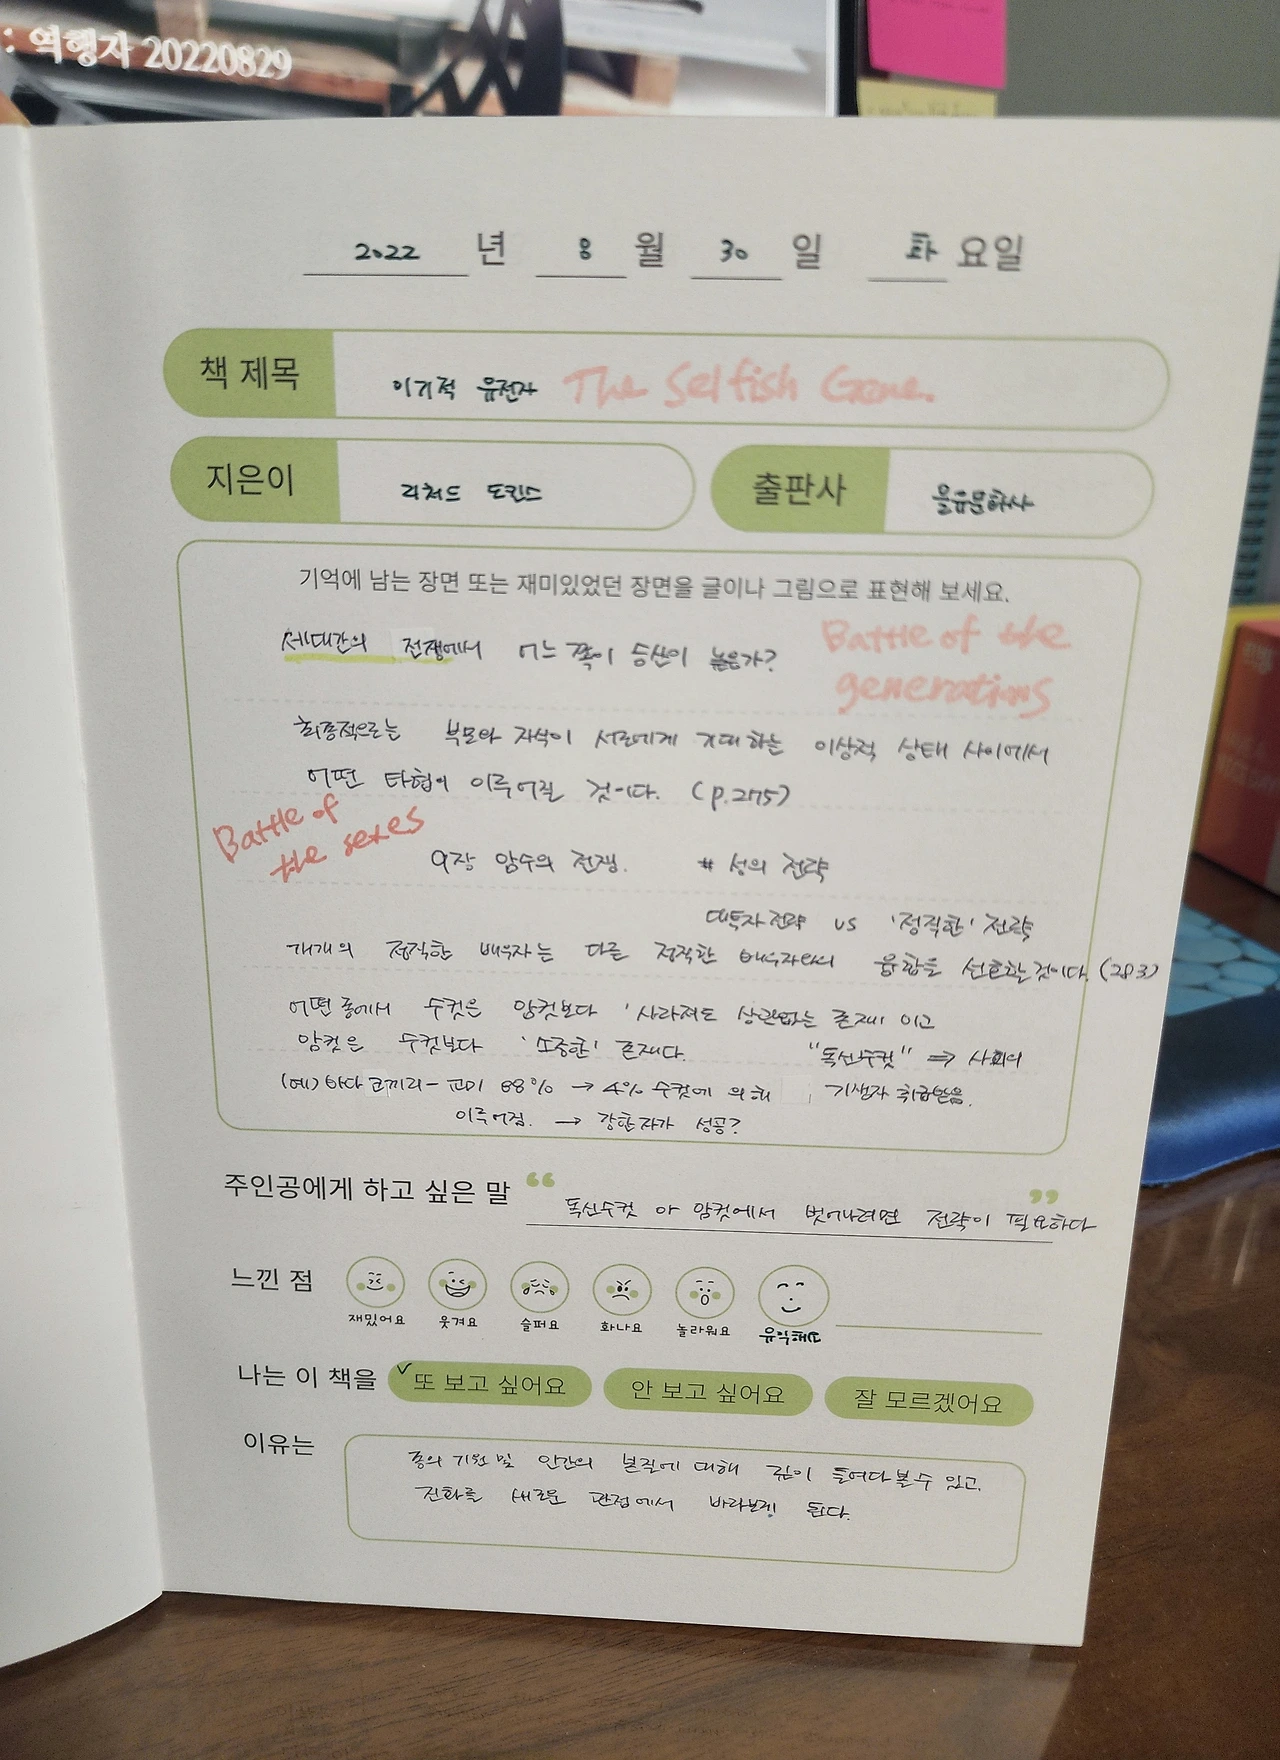 : 역행자 20220829
2022 년 8 월 30 일 화 요일
책 제목 이기적 유전자 The Selfish Gene.
지은이 리처드 도킨스 출판사 을유문화사
기억에 남는 장면 또는 재미있었던 장면을 글이나 그림으로 표현해 보세요.
세대간의 전쟁에서 어느 쪽이 승산이 높은가?
Battle of the
generations
최종적으로는 부모와 자식이 서로에게 기대하는 이상적 상태 사이에서
어떤 타협이 이루어질 것이다. (p.275)
Battle of
the sexes
9장 암수의 전쟁. # 성의 전략
대투자전략 vs '정직한' 전략
개개의 정직한 배우자는 다른 정직한 배우자와의 융합을 선호할것이다. (283)
어떤 종에서 수컷은 암컷보다 '사라져도 상관없는 존재' 이고
암컷은 수컷보다 '소중한' 존재다. "독신수컷" ⇒ 사회의
(예) 바다 코끼리 - 교미 88% → 4% 수컷에 의해 기생자 취급받음.
이루어짐. → 강한자가 성공?
주인공에게 하고 싶은 말 “ 독신수컷 아 암컷에서 벗어나려면 전략이 필요하다 ”
느낀 점
재밌어요 웃겨요 슬퍼요 화나요 놀라워요 유익해요
나는 이 책을 ✓또 보고 싶어요 안 보고 싶어요 잘 모르겠어요
이유는 종의 기원 및 인간의 본질에 대해 깊이 들여다볼 수 있고.
진화를 새로운 관점에서 바라보게 된다.